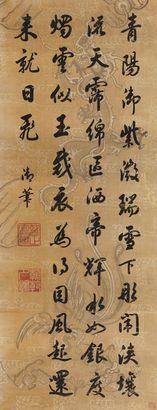 青陽御紫微瑞雪下彤闈浹壤
流天霈綿區洒帝輝水如銀度
燭雲似玉裁衣為得因風起還
來就日飛
御筆